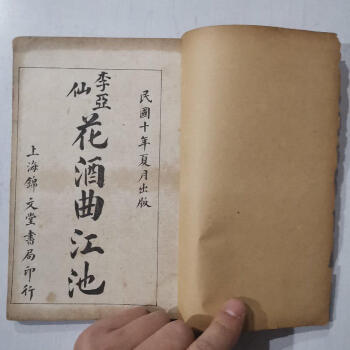 民國十年夏月出版
李亞仙
花酒曲江池
上海錦文堂書局印行